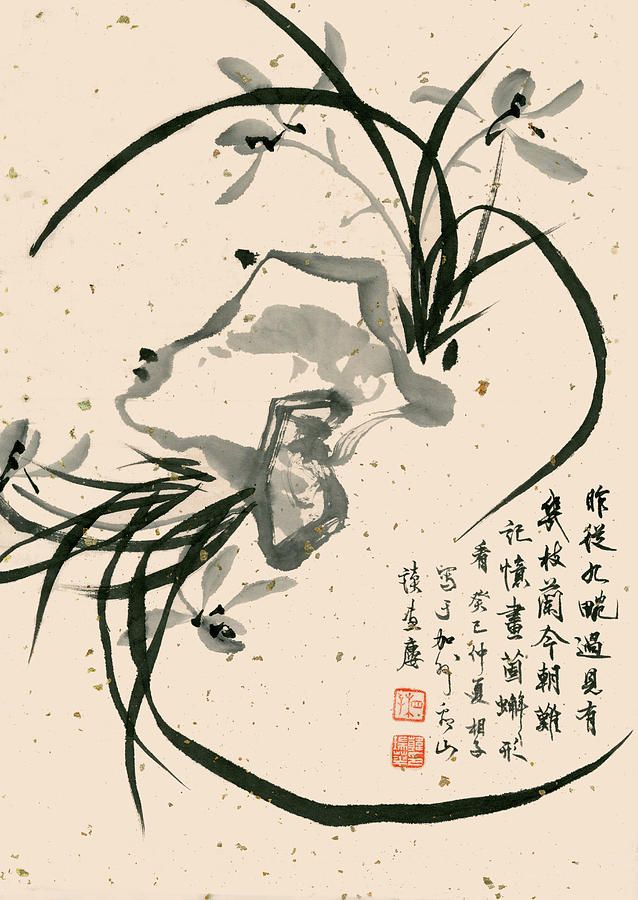 昨從九畹過見有
幾枝蘭今朝難
記憶畫箇蠏形
看 癸巳仲夏相子
寫于加州山
讀畫廔